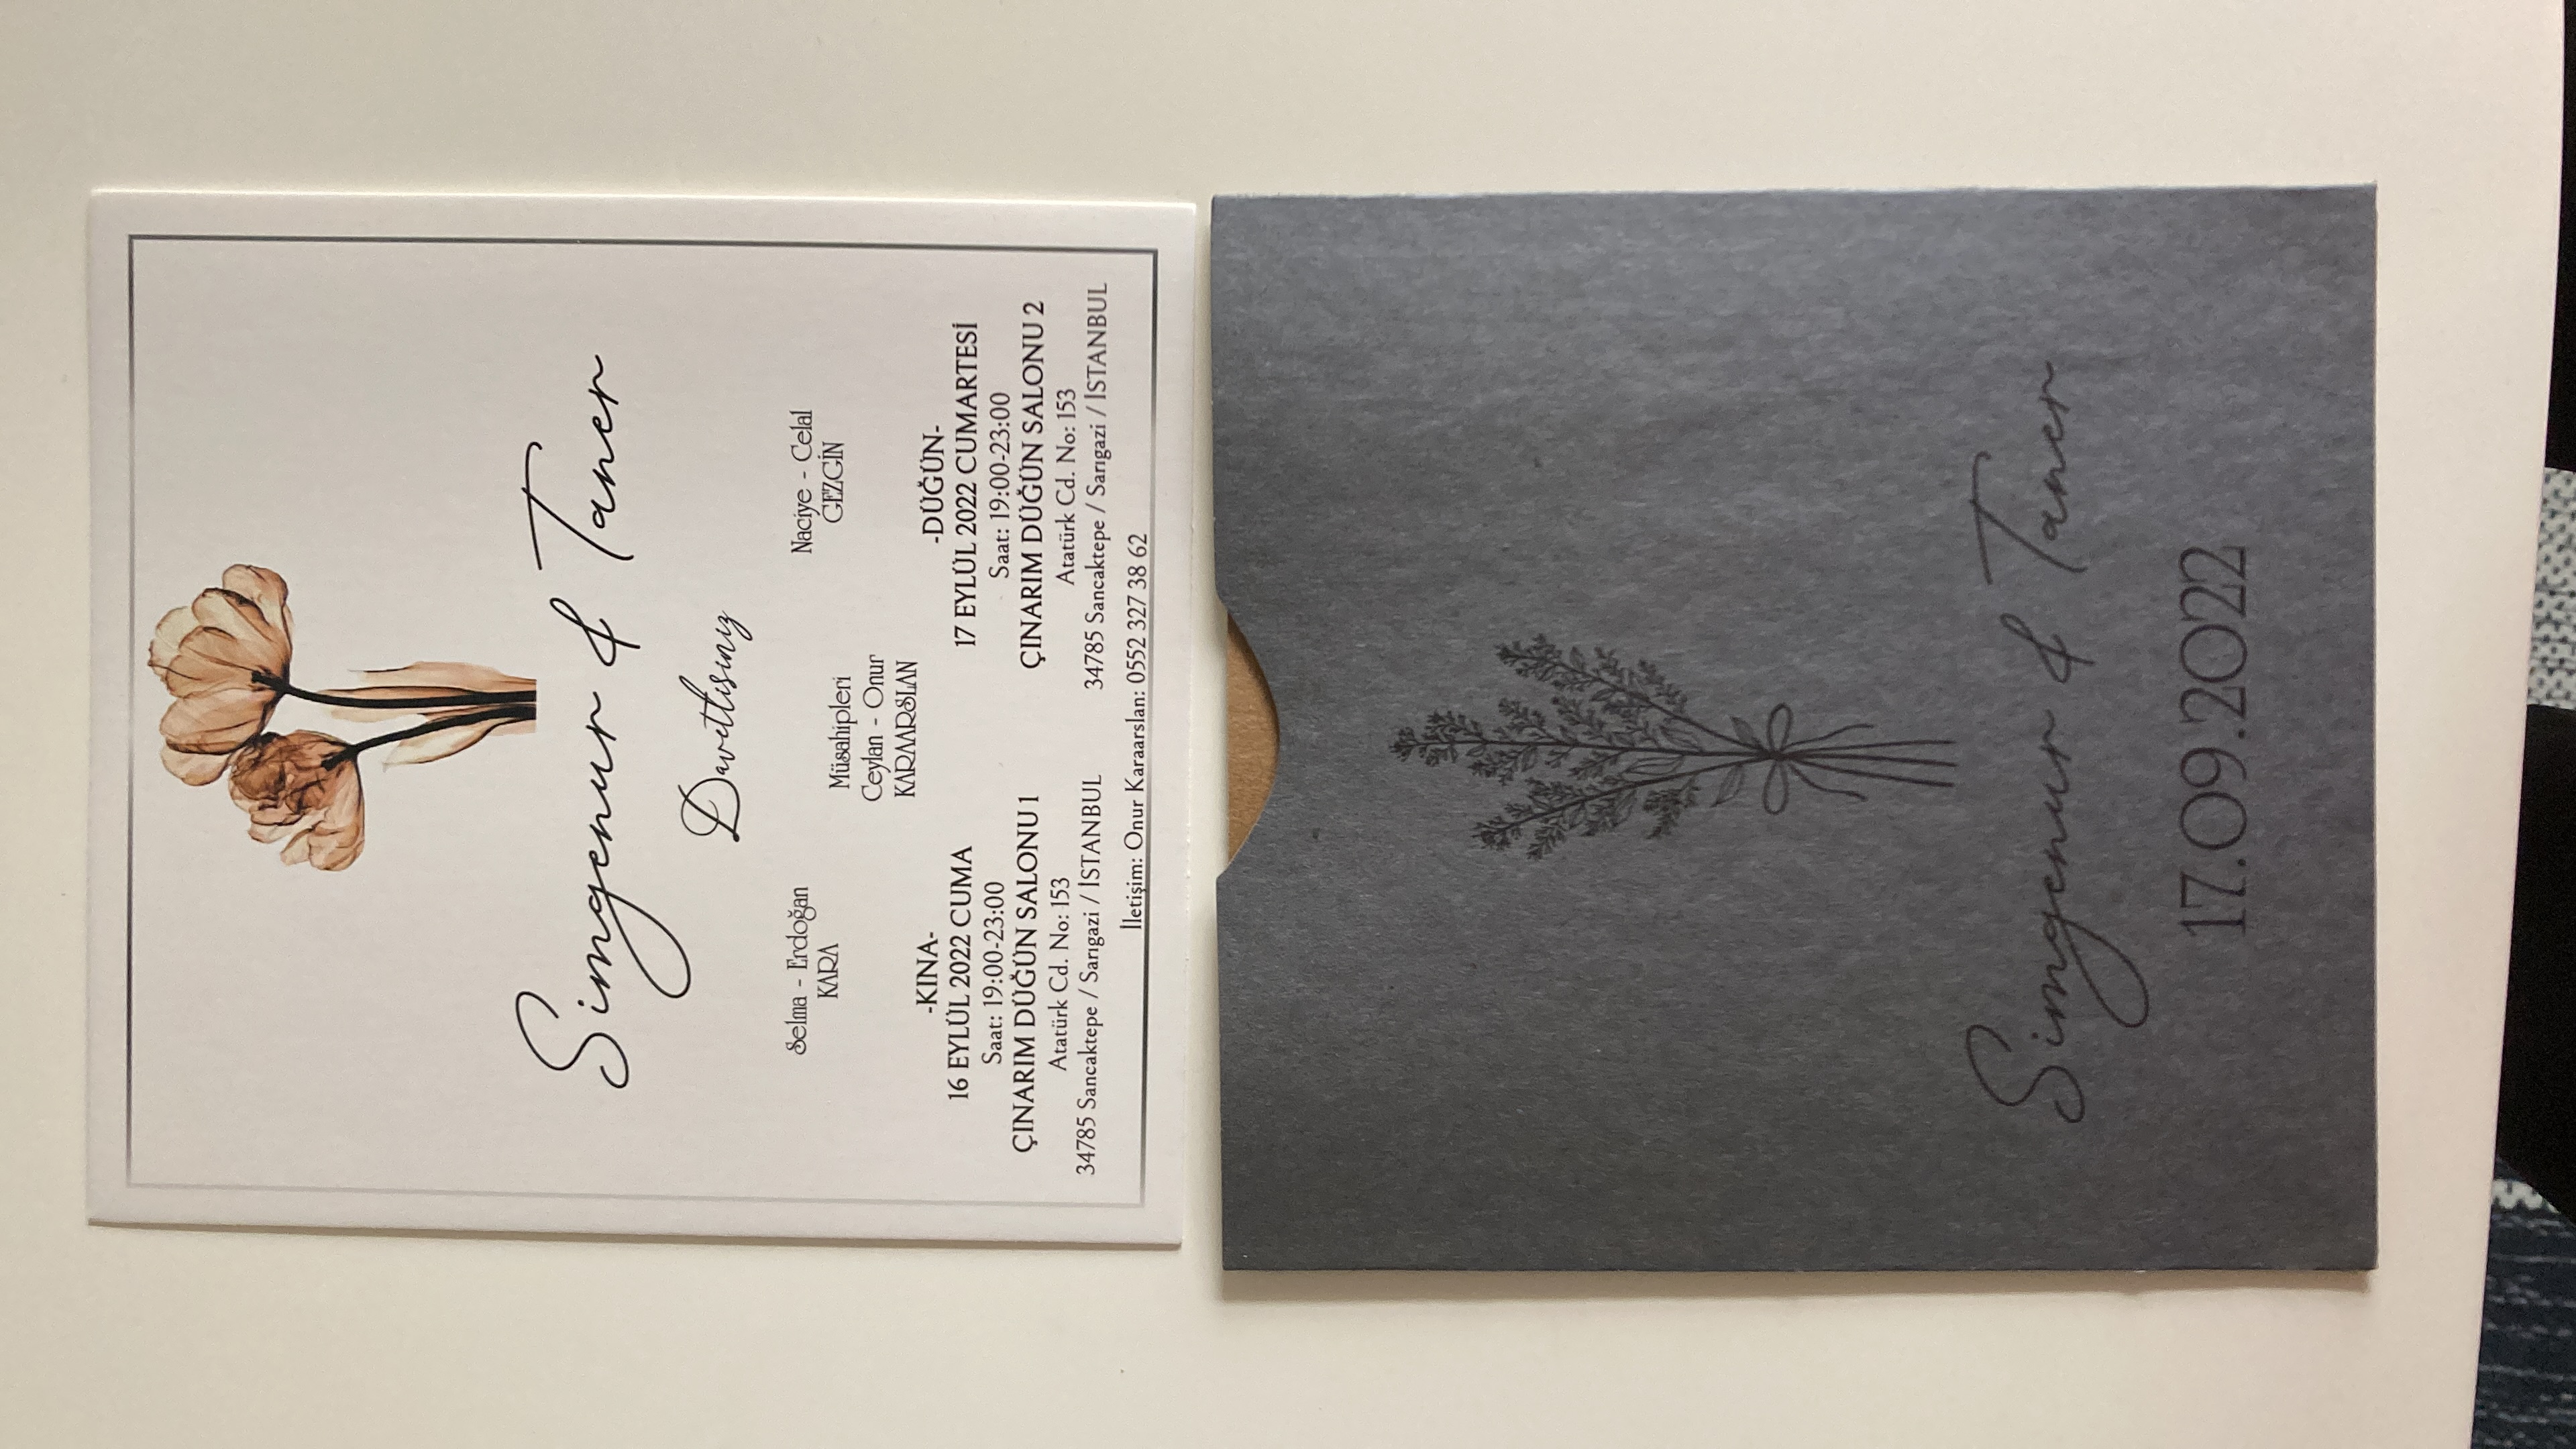 Simgenur & Taner
Davetlisiniz
Selma - Erdoğan
KARA
Naciye - Celal
GEZGİN
Müsahipleri
Ceylan - Onur
KARAARSLAN
-KINA-
16 EYLÜL 2022 CUMA
Saat: 19:00-23:00
ÇINARIM DÜĞÜN SALONU 1
Atatürk Cd. No: 153
34785 Sancaktepe / Sarıgazi / İSTANBUL
-DÜĞÜN-
17 EYLÜL 2022 CUMARTESİ
Saat: 19:00-23:00
ÇINARIM DÜĞÜN SALONU 2
Atatürk Cd. No: 153
34785 Sancaktepe / Sarıgazi / İSTANBUL
İletişim: Onur Karaarslan: 0552 327 38 62
Simgenur & Taner
17.09.2022